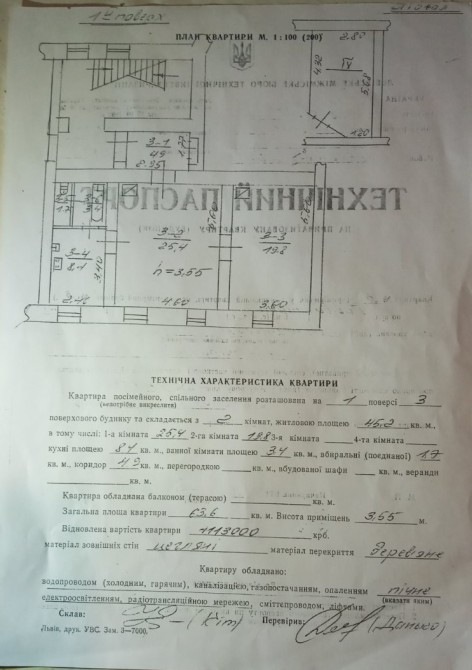 1й поверх
Підвал
ПЛАН КВАРТИРИ М. 1 : 100 (200)
2.80
4.30
IV
5.68
1.20
3-1
4.9
1.77
2.95
ТЕХНІЧНИЙ ПАСПОРТ
НА ПРИВАТИЗОВАНУ КВАРТИРУ
3-2
25,4
3-3
19.8
3-4
8.1
3.40
h=3,55
2.48
4.60
3.60
ТЕХНІЧНА ХАРАКТЕРИСТИКА КВАРТИРИ
Квартира посімейного, спільного заселення розташована на 1 поверсі 3
(непотрібне викреслити)
поверхового будинку та складається з 2 кімнат, житловою площею 45.2 кв. м.,
в тому числі: 1-а кімната 25,4 2-га кімната 19.8 3-я кімната 4-та кімната
кухні площею 8.1 кв. м., ванної кімнати площею 3.4 кв. м., вбиральні (поєднаної) 1.7
кв. м., коридор 4.9 кв. м., перегородкою кв. м., вбудованої шафи кв. м., веранди
кв. м.
Квартира обладнана балконом (терасою) кв. м.
Загальна площа квартири 63,6 кв. м. Висота приміщень 3,55 м.
Відновлена вартість квартири 1113000 крб.
матеріал зовнішніх стін цегляні матеріал перекриття деревяне
Квартиру обладнано:
водопроводом (холодним, гарячим), каналізацією, газопостачанням, опаленням пічне
електроосвітленням, радіотрансляційною мережею, сміттєпроводом, ліфтами.
(вказати яким)
Склав: (Кіт) Перевірив:
Львів. друк. УВС. Зам. 3—7000.